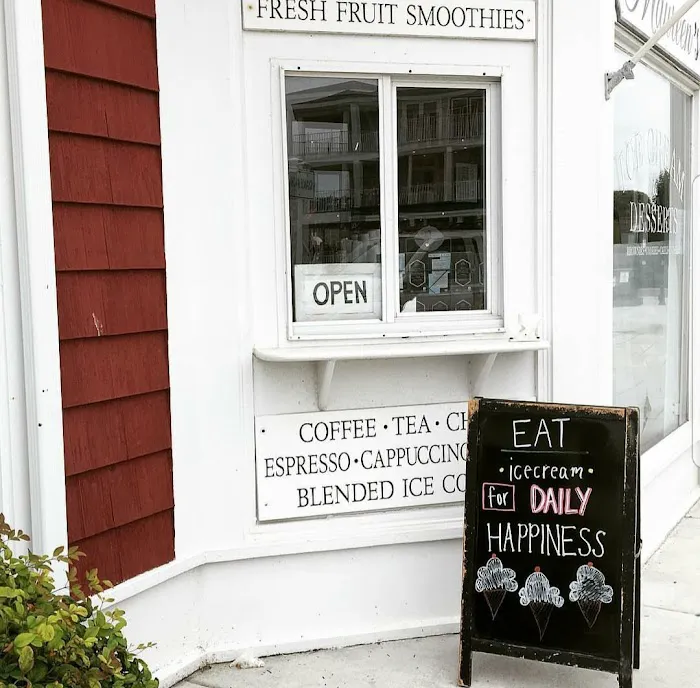 FRESH FRUIT SMOOTHIES
OPEN
COFFEE • TEA • CH
ESPRESSO • CAPPUCCINO
BLENDED ICE CO
EAT
• icecream •
for DAILY
HAPPINESS
ICE CREAM
DESSERTS